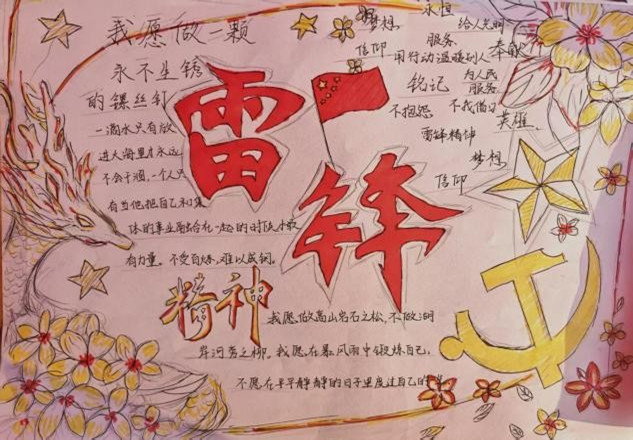 我愿做一颗
永不生锈
的螺丝钉
一滴水只有放
进大海里才永远
不会干涸,一个人只
有当他把自己和集
体的事业融合在一起的时候才能
有力量。不受百炼,难以成钢。
雷
锋
精神
我愿做高山岩石之松,不做湖
岸河旁之柳,我愿在暴风雨中锻炼自己,
不愿在平平静静的日子里度过自己的
梦想
永恒
给人光明
信仰
服务
奉献
用行动温暖别人
铭记
为人民
服务
不抱怨
不找借口
英雄
雷锋精神
梦想
信仰